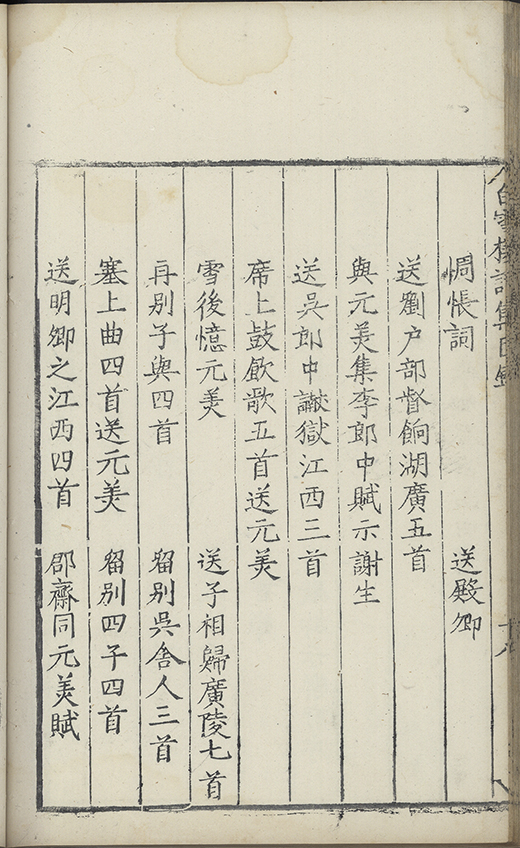 白雪樓詩集目錄
十八
惆悵詞 送殿卿
送劉户部督餉湖廣五首
與元美集李郎中賦示謝生
送吳郎中讞獄江西三首
席上鼓飮歌五首送元美
雪後憶元美 送子相歸廣陵七首
再別子與四首 留別吳舍人三首
塞上曲四首送元美 留別四子四首
送明卿之江西四首 郡齋同元美賦